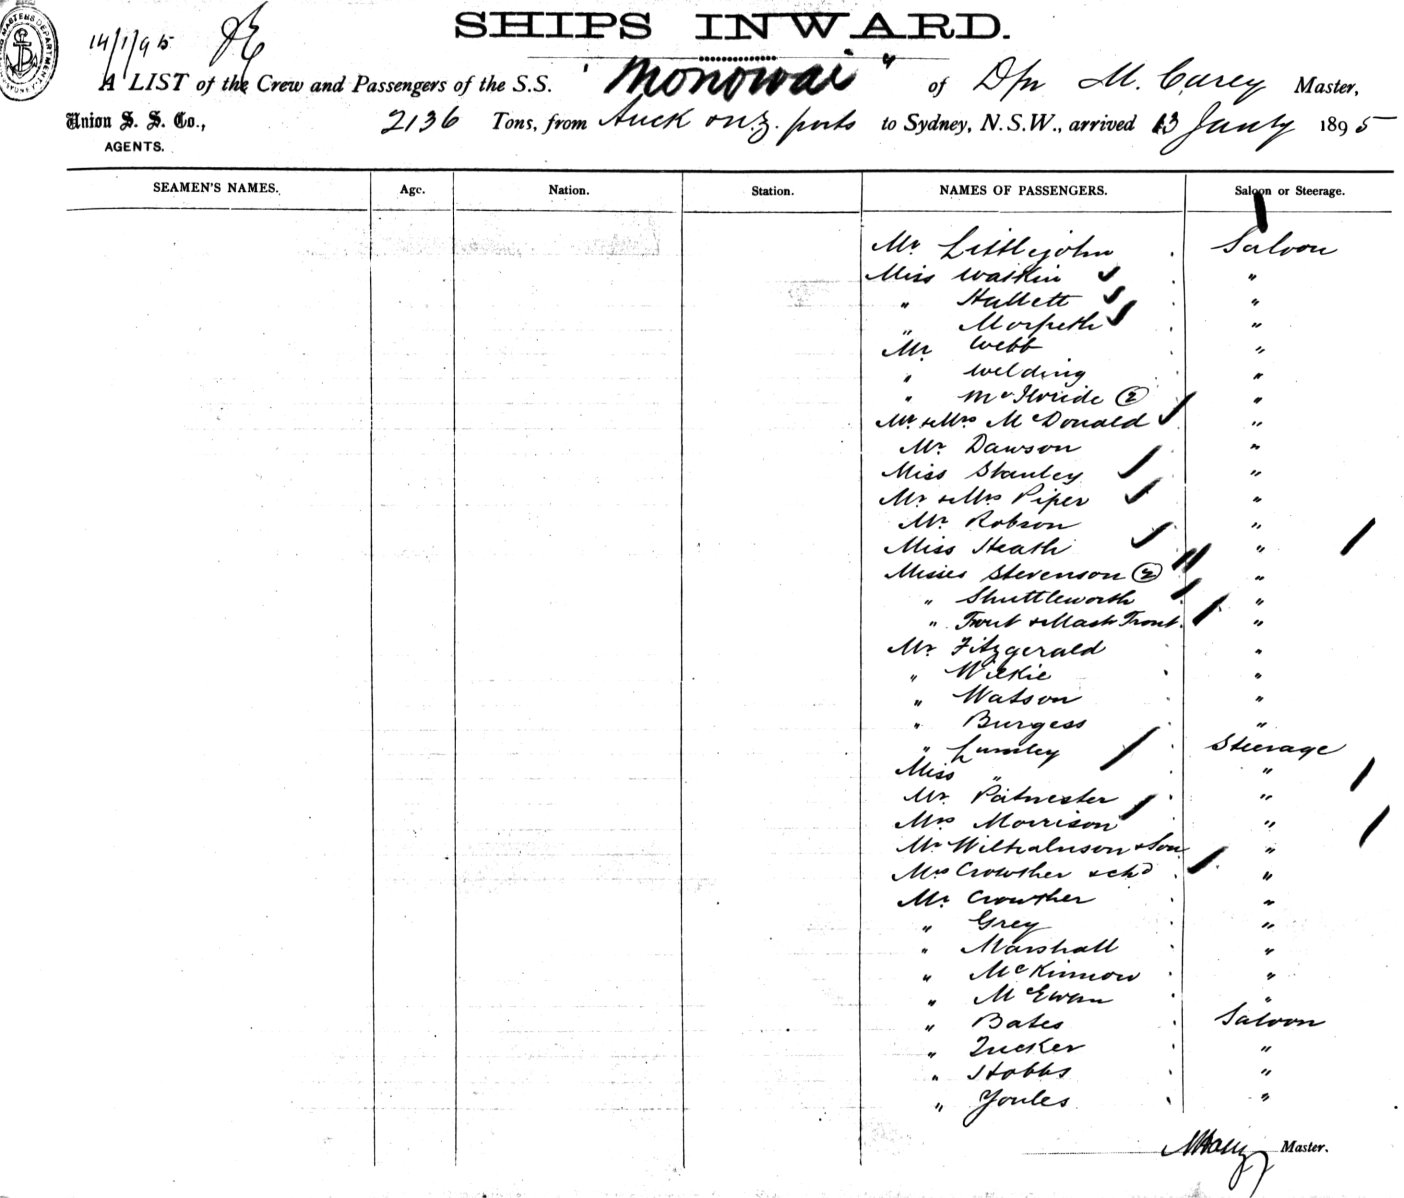 SHIPS INWARD.
14/1/95
A LIST of the Crew and Passengers of the S.S. "Monowai" of Dpn M. Carey Master,
Union S. S. Co., 2136 Tons, from Auck & N.Z. ports to Sydney, N.S.W., arrived 13 Jany 1895
AGENTS.
SEAMEN'S NAMES. Age. Nation. Station. NAMES OF PASSENGERS. Saloon or Steerage.
Mr Littlejohn Saloon
Miss Watkin "
" Hallett "
" Morpeth "
Mr Webb "
" Welding "
" (2) "
Mr & Mrs McDonald "
Mr Dawson "
Miss Stanley "
Mr & Mrs Piper "
Mr Robson "
Miss Heath "
Misses Stevenson (2) "
" Shuttleworth "
" Trout & Mast Trout "
Mr Fitzgerald "
" Wilkie "
" Watson "
" Burgess "
" Lumley Steerage
Miss " "
Mr "
Mrs Morrison "
Mr & Son "
Mrs Crowther & chd "
Mr Crowther "
" Grey "
" Marshall "
" McKinnon "
" McEwan "
" Bates Saloon
" Tucker "
" Hobbs "
" Youles "
MCarey Master.